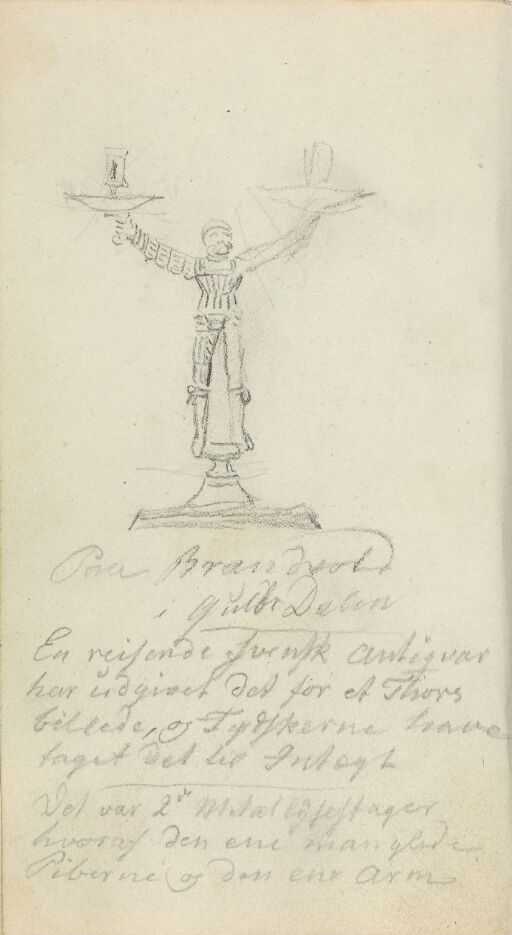 Paa Brandvold
i Gulbr Dalen
En reisende Svensk Antiqvar
har udgivet det for et Thors
billede, og Tydskerne have
taget det til Indtægt
Det var 2de Metal lysestager
hvoraf den ene manglede
Piberne og den ene Arm